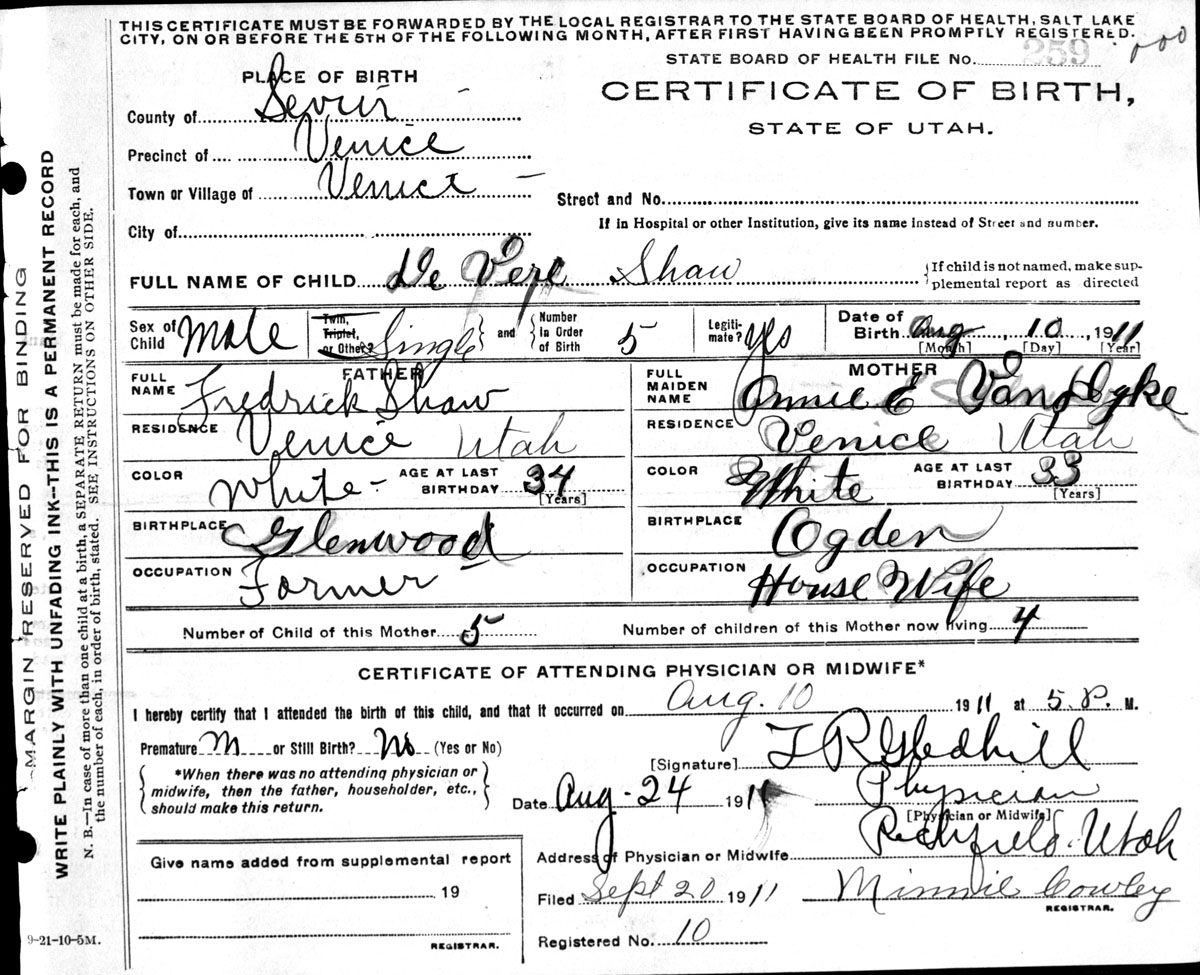 THIS CERTIFICATE MUST BE FORWARDED BY THE LOCAL REGISTRAR TO THE STATE BOARD OF HEALTH, SALT LAKE
CITY, ON OR BEFORE THE 5TH OF THE FOLLOWING MONTH, AFTER FIRST HAVING BEEN PROMPTLY REGISTERED.
000
STATE BOARD OF HEALTH FILE No. 259
PLACE OF BIRTH
CERTIFICATE OF BIRTH,
STATE OF UTAH.
County of Sevier
Precinct of Venice
Town or Village of Venice
Street and No.
If in Hospital or other Institution, give its name instead of Street and number.
City of
FULL NAME OF CHILD De Vere Shaw
{If child is not named, make sup-
plemental report as directed
Sex of Child Male
Twin, Triplet, or Other? Single } and { Number In Order of Birth 5
Legiti-mate? yes
Date of Birth Aug, 10, 1911
[Month] [Day] [Year]
FATHER
FULL NAME Fredrick Shaw
RESIDENCE Venice Utah
COLOR White- AGE AT LAST BIRTHDAY 34
[Years]
BIRTHPLACE Glenwood
OCCUPATION Farmer
MOTHER
FULL MAIDEN NAME Annie E Van Dyke
RESIDENCE Venice Utah
COLOR White AGE AT LAST BIRTHDAY 33
[Years]
BIRTHPLACE Ogden
OCCUPATION House Wife
Number of Child of this Mother 5 Number of children of this Mother now living 4
CERTIFICATE OF ATTENDING PHYSICIAN OR MIDWIFE*
I hereby certify that I attended the birth of this child, and that it occurred on Aug. 10 1911 at 5 P. M.
Premature or Still Birth? No (Yes or No)
{ *When there was no attending physician or
midwife, then the father, householder, etc.,
should make this return. }
[Signature] T R Gledhill
Date Aug-24 1911 Physician
[Physician or Midwife]
Address of Physician or Midwife Richfield. Utah
Filed Sept 20 1911 Minnie Cowley
REGISTRAR.
Registered No. 10
Give name added from supplemental report
19
REGISTRAR.
9-21-10-5M.
MARGIN RESERVED FOR BINDING
WRITE PLAINLY WITH UNFADING INK--THIS IS A PERMANENT RECORD
N. B.—In case of more than one child at a birth, a SEPARATE RETURN must be made for each, and
the number of each, in order of birth, stated. SEE INSTRUCTIONS ON OTHER SIDE.